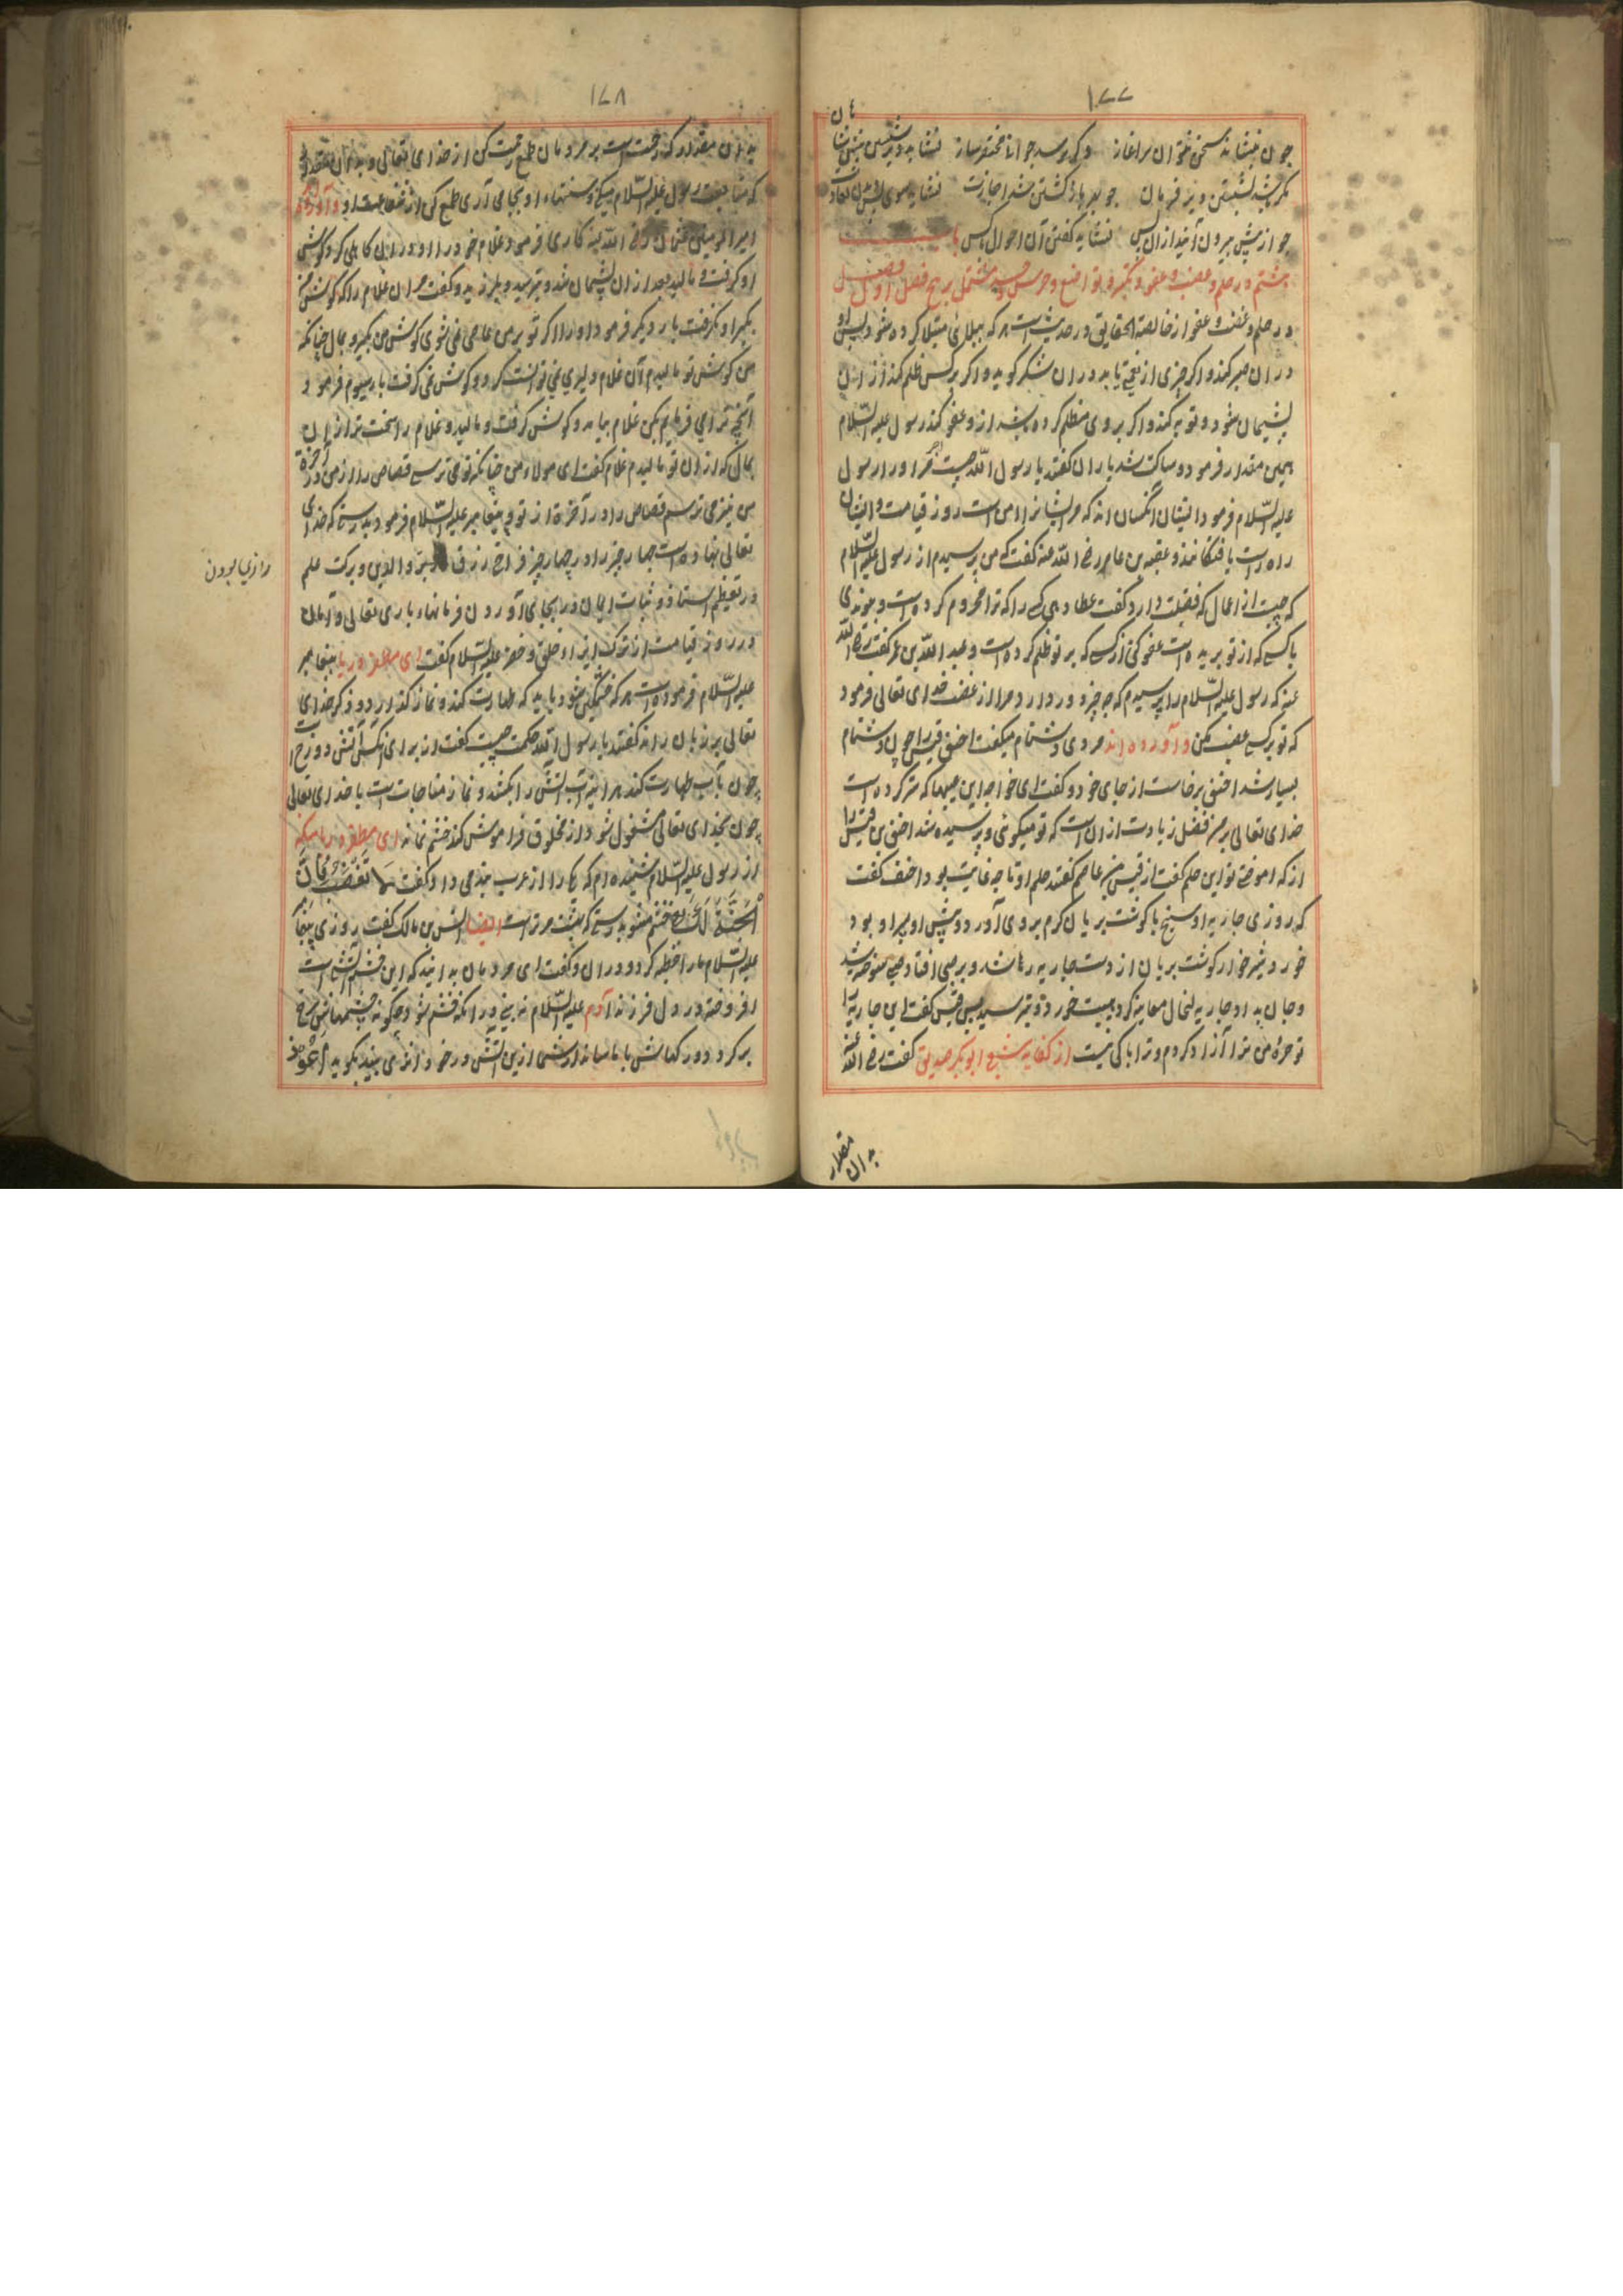 ۱۷۷
چون بنشاند سخن نخوان سراغاز دکر پرسد جوانا مختصر ساز نشاید دیر
مکن شبه نشستن دیر فرمان چو بهر بازکشتن شد اجازت نشاید سوی
چو از پیش بیرون آیند ازان پس نشاید کفتن آن احوال باکس باب
هشتم در حلم و غضب و عفو و تکبر و تواضع و حرص و مشتمل بر پنج فصل فصل اول
در حلم و غضب و عفو از خالصة الحقایق در حدیث است هر که ببلای مبتلا کرده شود پس او
دران صبر کند و اکر چیزی از نعمتی یابد دران شکر کوید و اکر بر کس ظلم کند از ان
پشیمان شود و توبه کند و اکر بر وی مظلم کرده باشد ازو عفو کند رسول علیه السّلام
همین مقدار فرمود و ساکت شد یاران کفتند یا رسول اللّه چیست مر او را رسول
علیه السّلام فرمود ایشان آنکسان اند که مر ایشانرا امن است روز قیامت و ایشان
راه راست یافتکانند و عقبه بن عامر رضی اللّه عنه کفت که من پرسیدم از رسول علیه السّلام
که چیست از اعمال که فضیلت دارد کفت عطا دهی کسی را که ترا محروم کرده است و پیوندی
با کسی که از تو بریده است عفو کنی از کسی که بر تو ظلم کرده است و عبد اللّه بن عمر کفت رضی اللّه
عنه که رسول علیه السّلام را پرسیدم که چه چیز دور دارد مرا از غضب خدای تعالی فرمود
که تو بر کسی غضب مکن و آورده اند مردی دشنام میکفت احنف قیس را چون دشنام
بسیار شد احنف برخاست از جای خود و کفت ای خواجه این عیبها که ستر کرده است
خدای تعالی بر من فضل زیادت از ان است که تو میکوئی و پرسیده شد احنف بن قیس را
از که اموختی تو این حلم کفت از قیس بن عاصم کفتند حلم او تا چه غایت بود احنف کفت
که روزی جاریه او سیخ با کوشت بریان کرم بر وی آورد و پیش او پسر او بود
خورد شیرخوار کوشت بریان از دست جاریه رها شد و بر صبی افتاد صبی سوخته شد
و جان بداد جاریه این حال معاینه کرد هیبت خورد و بترسید پس قیس کفت ای جاریه
تو حره من ترا آزاد کردم و ترا باکی نیست از کفایه شیخ ابو بکر صدیق کفت رضی اللّه عنه
بدان مقدار
۱۷۸
بدان مقدار که رحمت است بر مردمان طمع رحمت کن از خدای تعالی و بدان مقدار
که متابعت رسول علیه السّلام میکنی و سنتهاء او بجای آری طمع کن از شفاعت او و آورده اند
امیر المومنین عثمان رضی اللّه عنه کاری فرمود غلام خود را او دران کاهلی کرد کوش
او کرفت و مالید بعد ازان پشیمان شد و بترسید و بلرزید و کفت مران غلام را که کوش من
بکیر او نکرفت بار دیکر فرمود او را اکر تو بر من عاصی نمی شوی کوش من بکیر و بمال چنانکه
من کوش تو مالیدم آن غلام دلیری نمی توانست کرد و کوش نمی کرفت بار سیوم فرمود
آنچه ترا می فرمایم بکن غلام بیامد و کوش کرفت و مالید و غلام را سخت تر ازان
بمال که ازان تو مالیدم غلام کفت ای مولاء من چنانکه تو می ترسی قصاص را از من در آخرة
من نیز می ترسم قصاص را در آخرة از تو و پیغامبر علیه السّلام فرمود بدرستی که خدای
تعالی نهاده است چهار چیز را در چهار چیز فراخی رزق والدین و برکت علم
در تعظیم استاذ و ثبات ایمان در بجای آوردن فرمانهاء باری تعالی و آمان
در روز قیامت از ترک ایذاء خلق و خضر علیه السّلام کفت ای پیغامبر
علیه السّلام فرموده است هر که خشمکین شود باید که طهارت کند و نماز کذارد و ذکر خدای
تعالی بر زبان راند کفتند یا رسول اللّه حکمت چیست کفت از برای آنکه آتش دوزخ
چون بآب طهارت کند هر اینه آب آتش را بکشد و نماز مناجات است با خدای تعالی
چون بخدای تعالی مشغول شود از مخلوق فراموش کند خشم نماند ای
از رسول علیه السّلام شنیده ام که یکی را از عرب پند می داد کفت لا تغضب فان
الجنة لک خشم مشو بدرستی که بهشت مر تراست ایضا انس بن مالک کفت روزی پیغامبر
علیه السّلام ما را خطبه کرد و دران کفت ای مردمان بدانید که این خشم آتشی است
افروخته در دل فرزند آدم علیه السّلام نه بینی ورا که خشم شود چکونه چشمهاش سرخ
بر کردد و رکهاش با ماسد از شما ازین آتش در خود اثر می بیند بکوید اعوذ